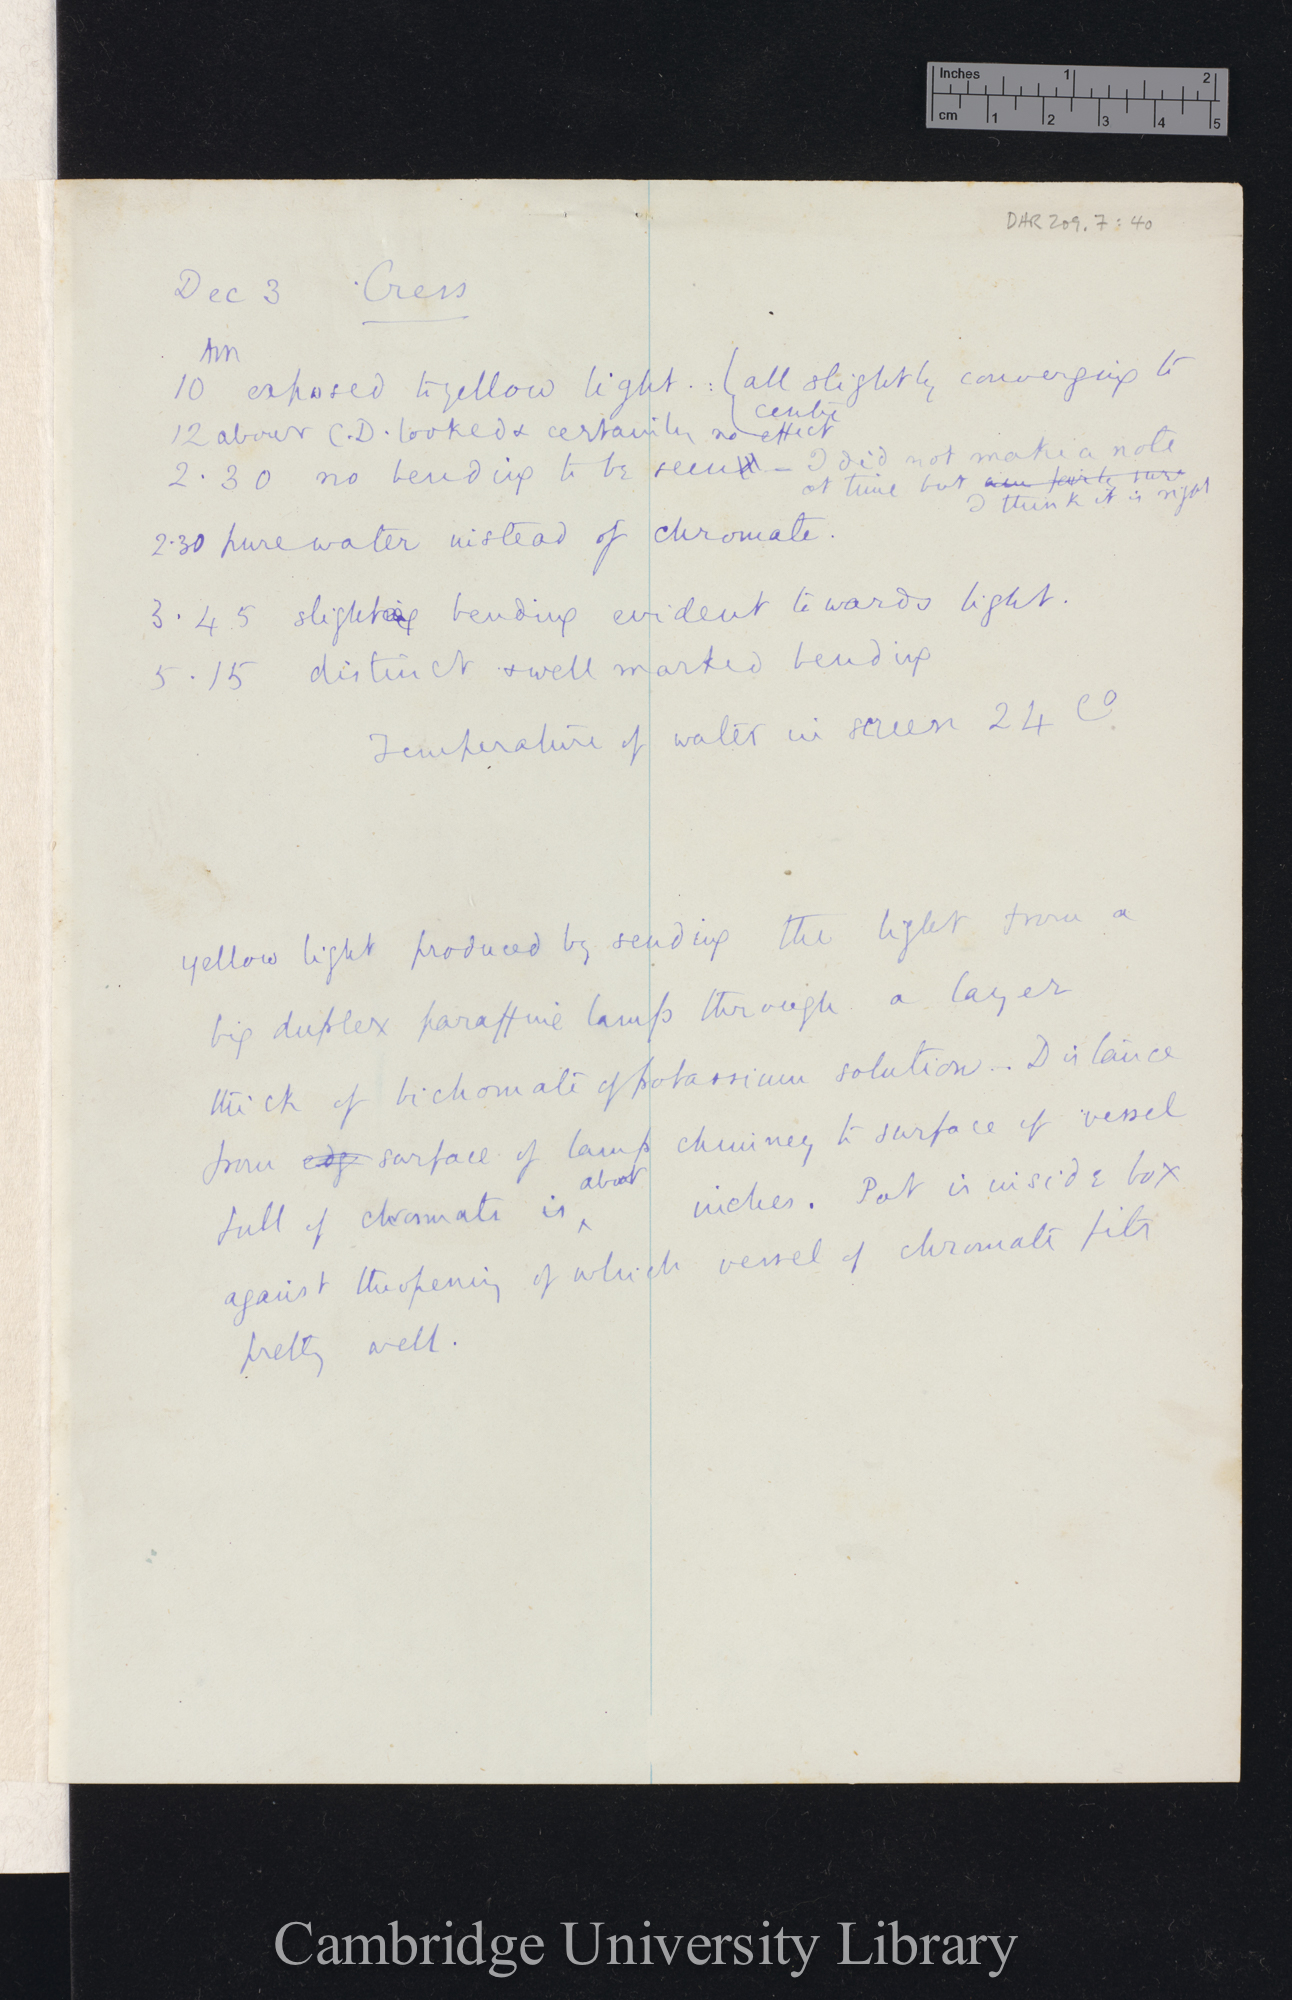 Inches 1 2
cm 1 2 3 4 5
DAR 209.7:40
Dec 3 Cress
AM
10 exposed to yellow light. : { all slightly converging to
centre
12 about C.D. looked & certainly no effect
2.30 no bending to be seen — I did not make a note
at time but am fairly sure
I think it is right
2.30 pure water instead of chromate.
3.45 slight bending evident towards light.
5.15 distinct & well marked bending
Temperature of water in screen 24 C°
Yellow light produced by sending the light from a
big duplex paraffine lamp through a layer
thick of bichomate of potassium solution. Distance
from edge surface of lamp chimney to surface of vessel
about
full of chromate is ^ inches. Pot is inside box
against the opening of which vessel of chromate fits
pretty well.
Cambridge University Library